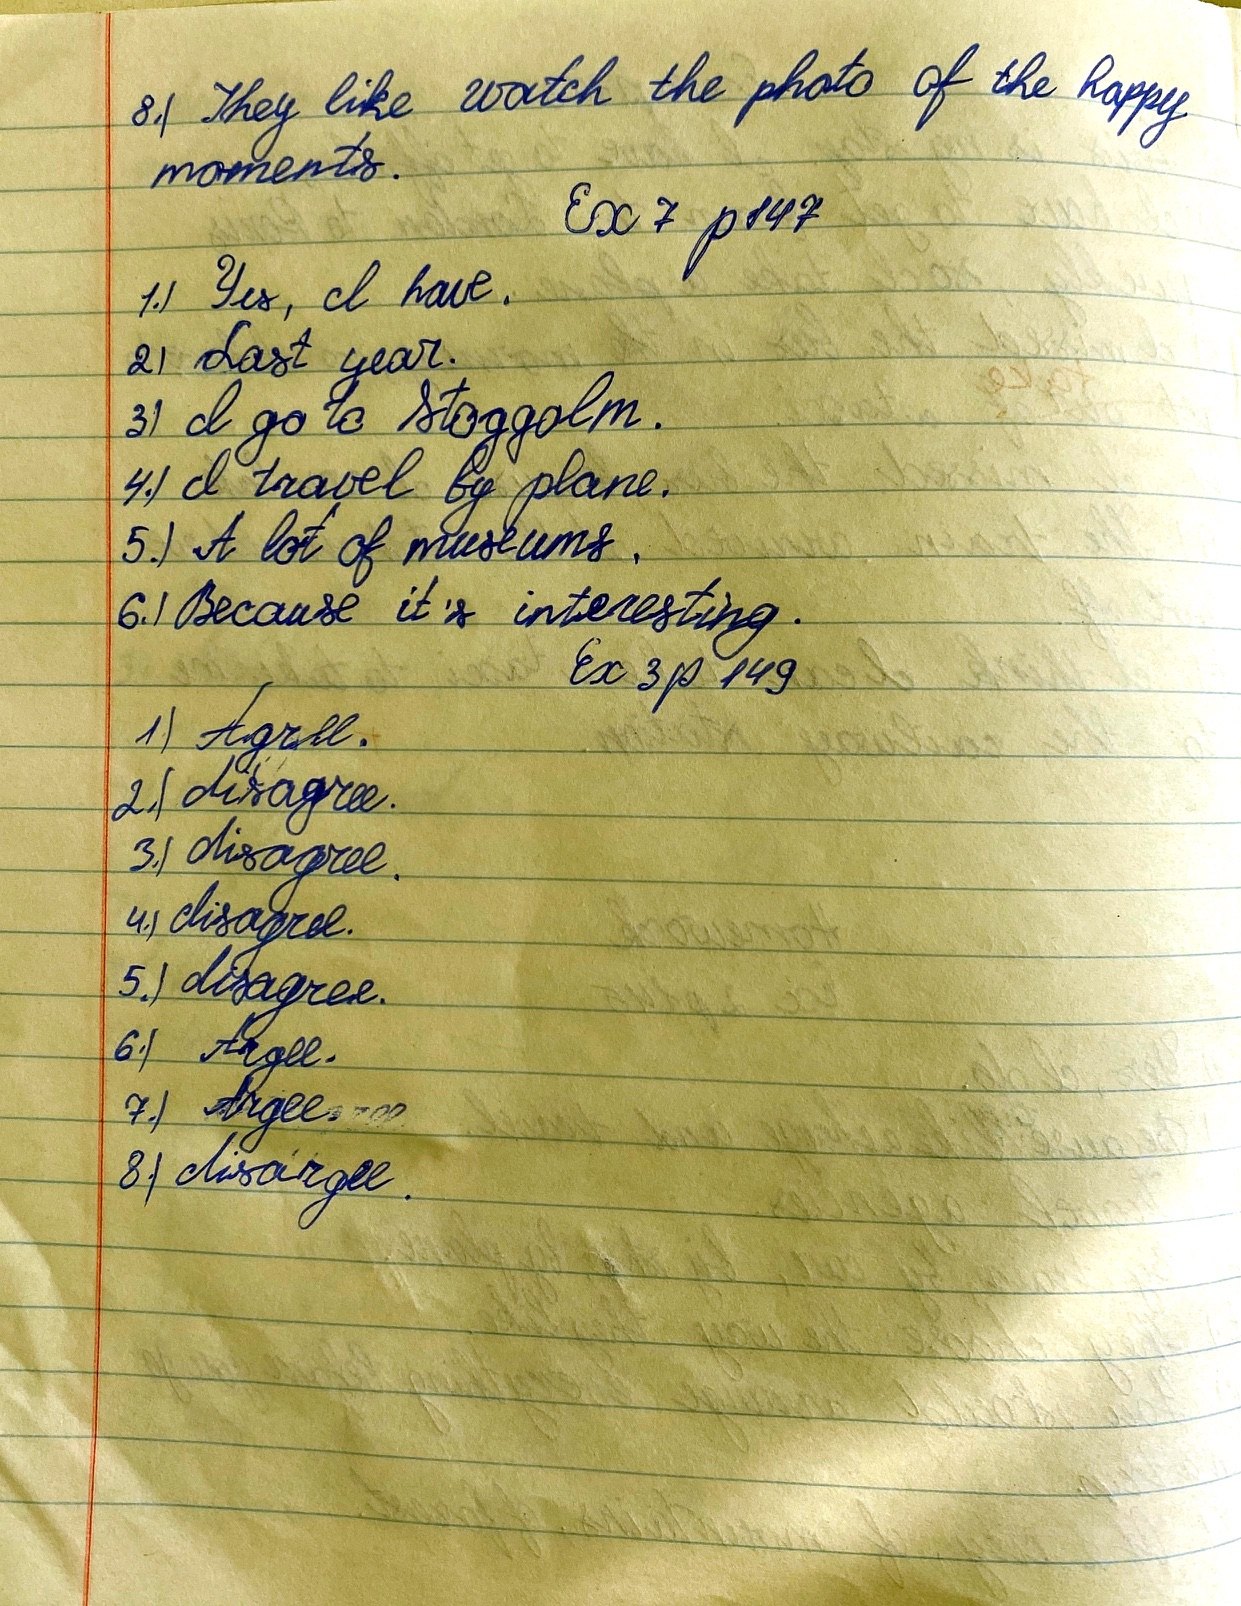 8.) They like watch the photo of the happy
moments.
Ex 7 p 147
1.) Yes, I have.
2) Last year.
3) I go to Stoggolm.
4.) I travel by plane.
5.) A lot of museums.
6.) Because it's interesting.
Ex 3 p 149
1) Agree.
2.) disagree.
3.) disagree.
4.) disagree.
5.) disagree.
6.) Argee.
7.) Argee.
8.) disargee.